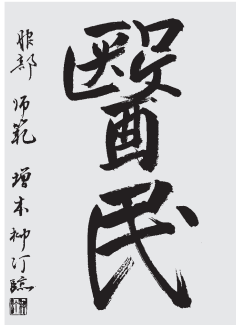 醫民
服部 师範 増木柳汀臨